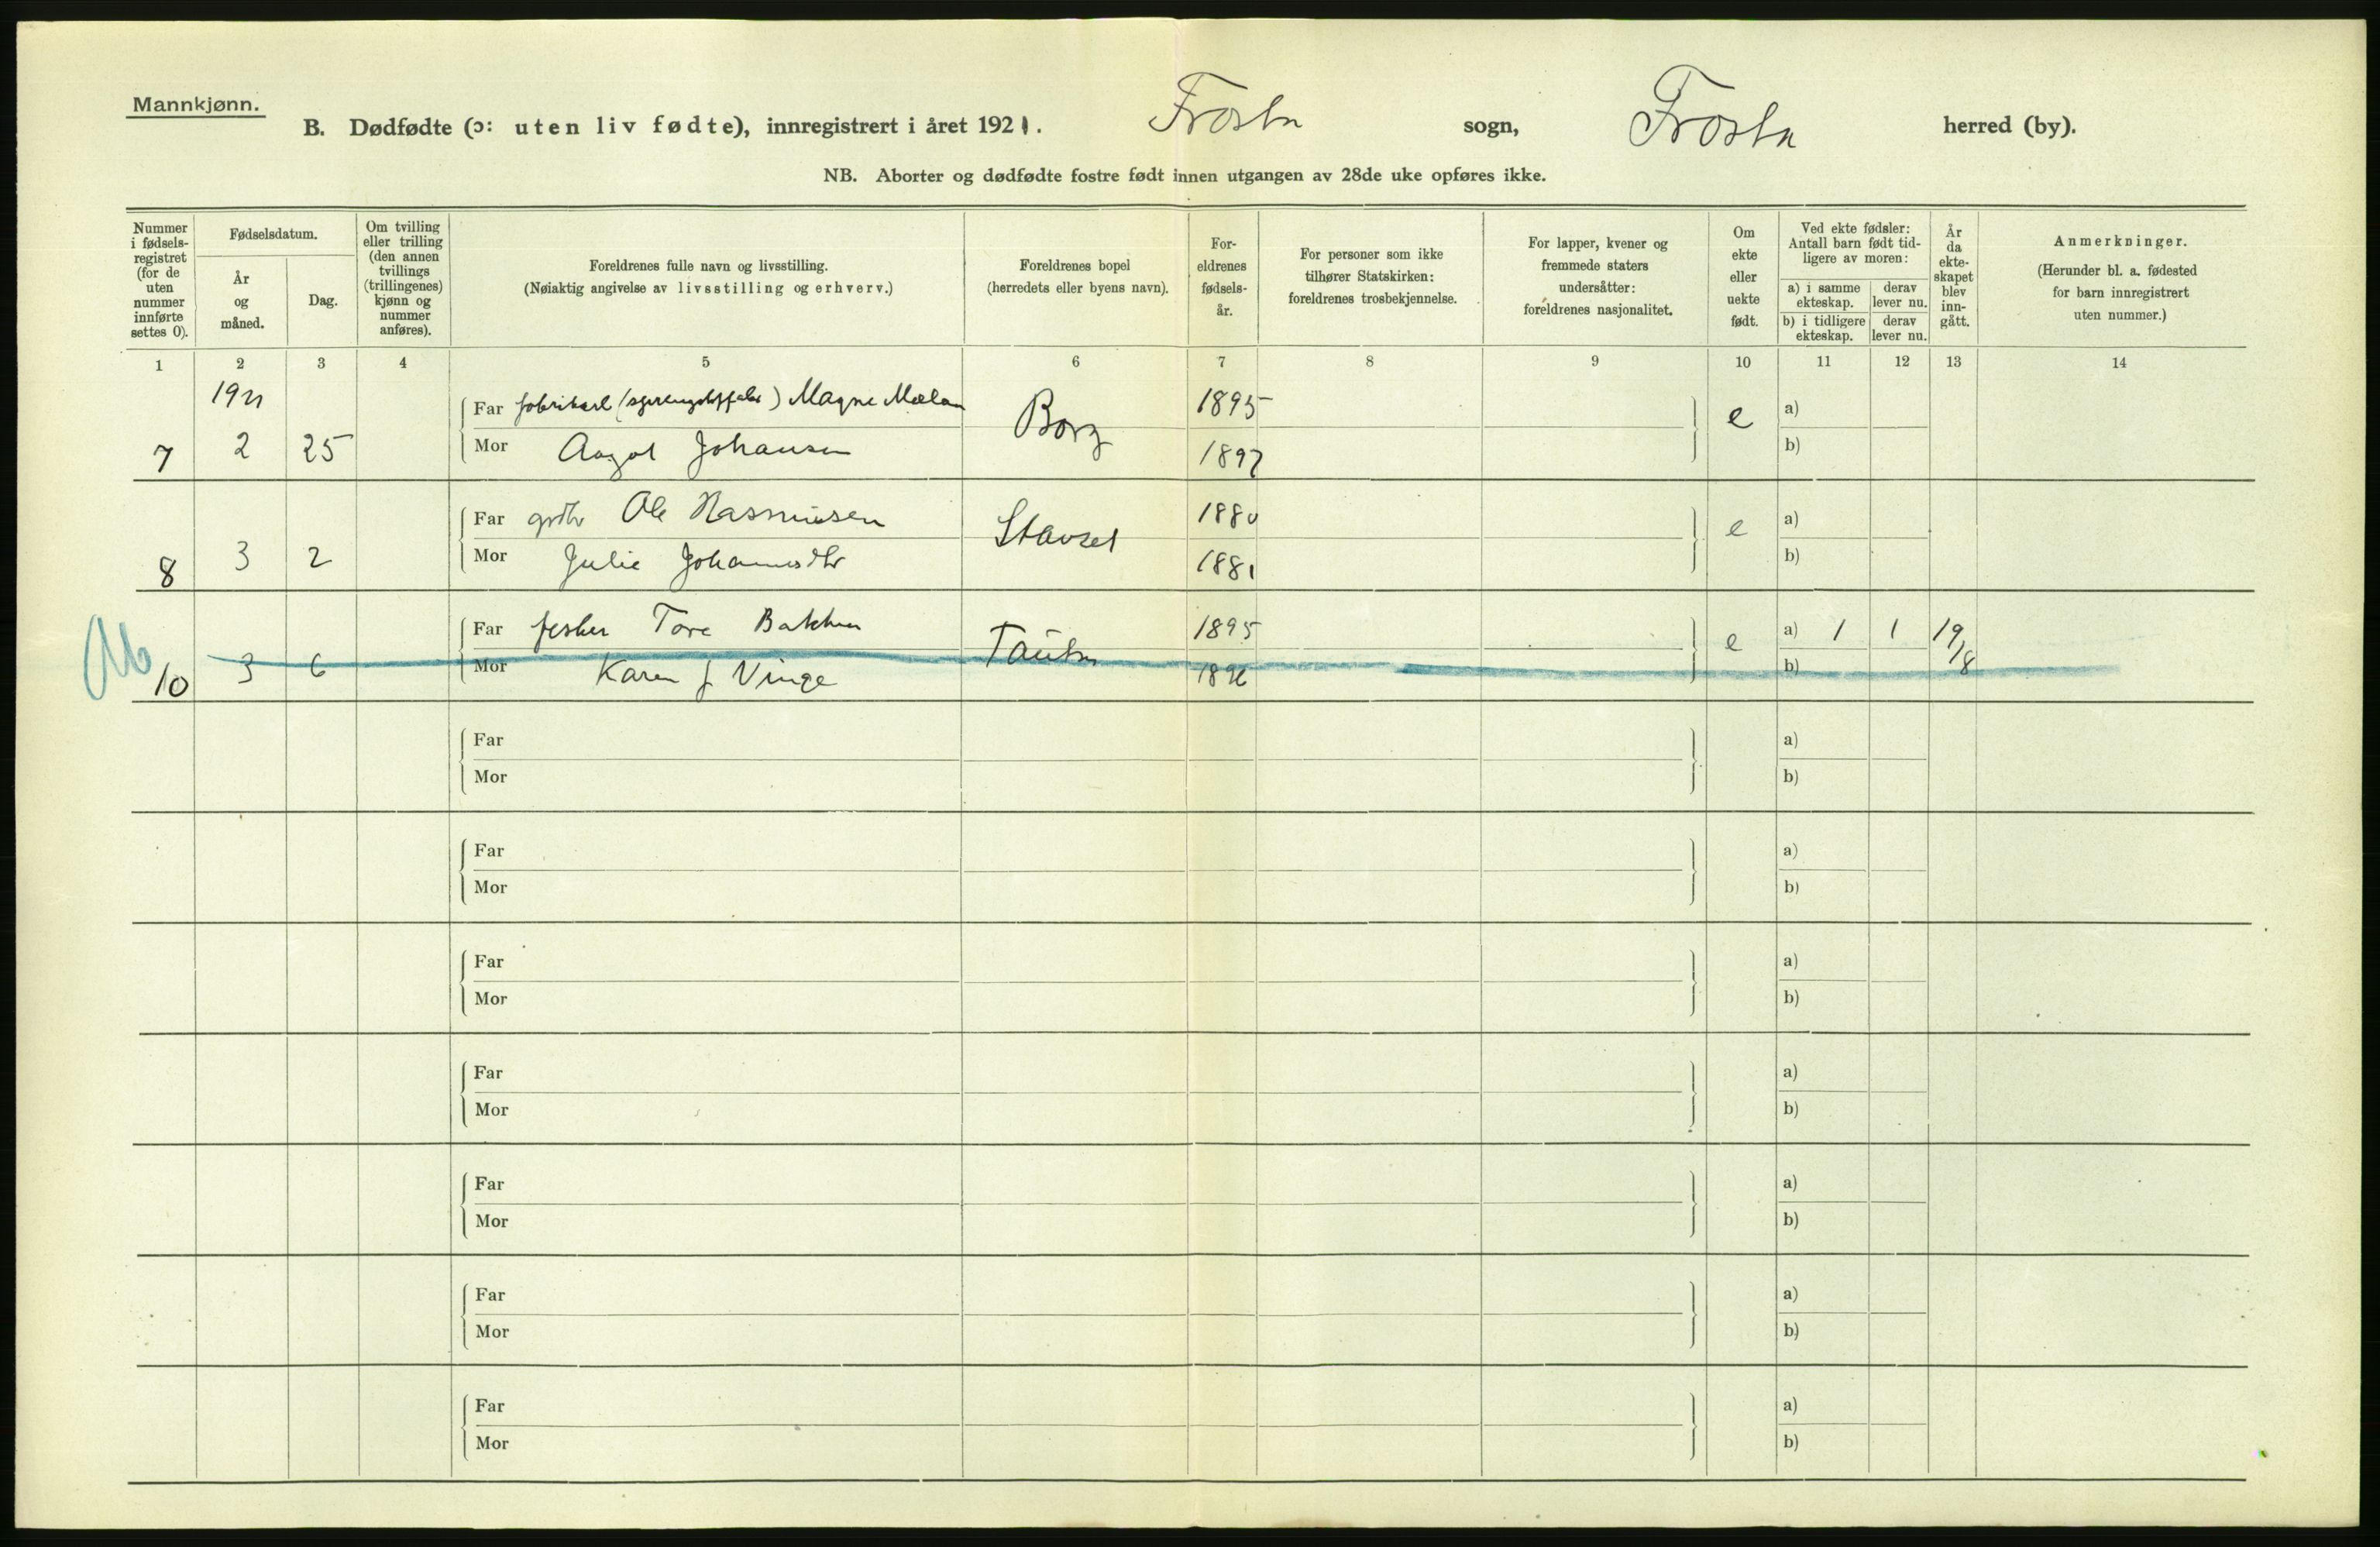 Mannkjønn.
B. Dødfødte (ɔ: uten liv fødte), innregistrert i året 1921. Frosta sogn, Frosta herred (by).
NB. Aborter og dødfødte fostre født innen utgangen av 28de uke opføres ikke.
Nummer i fødsels-registret (for de uten nummer innførte settes 0).
Fødselsdatum.
År og måned.
Dag.
Om tvilling eller trilling (den annen tvillings (trillingenes) kjønn og nummer anføres).
Foreldrenes fulle navn og livsstilling.
(Nøiaktig angivelse av livsstilling og erhverv.)
Foreldrenes bopel
(herredets eller byens navn).
For-eldrenes fødsels-år.
For personer som ikke tilhører Statskirken: foreldrenes trosbekjennelse.
For lapper, kvener og fremmede staters undersåtter: foreldrenes nasjonalitet.
Om ekte eller uekte født.
Ved ekte fødsler: Antall barn født tid-ligere av moren:
a) i samme ekteskap.
derav lever nu.
b) i tidligere ekteskap.
derav lever nu.
År da ekte-skapet blev inn-gått.
Anmerkninger.
(Herunder bl. a. fødested for barn innregistrert uten nummer.)
1 2 3 4 5 6 7 8 9 10 11 12 13 14
1921
Far Magne Mælan 1895 a)
7 2 25 Borg e
Mor Aagot Johansen 1897 b)
Far grdbr Ole Rasmussen 1880 a)
8 3 2 Stavset e
Mor Julie Johannesdtr 1881 b)
Far fisker Tore Bakken 1895 a) 1 1 19/8
10 3 6 Tautra e
Mor Karen J Vinge b)
Far a)
Mor b)
Far a)
Mor b)
Far a)
Mor b)
Far a)
Mor b)
Far a)
Mor b)
Far a)
Mor b)
Far a)
Mor b)